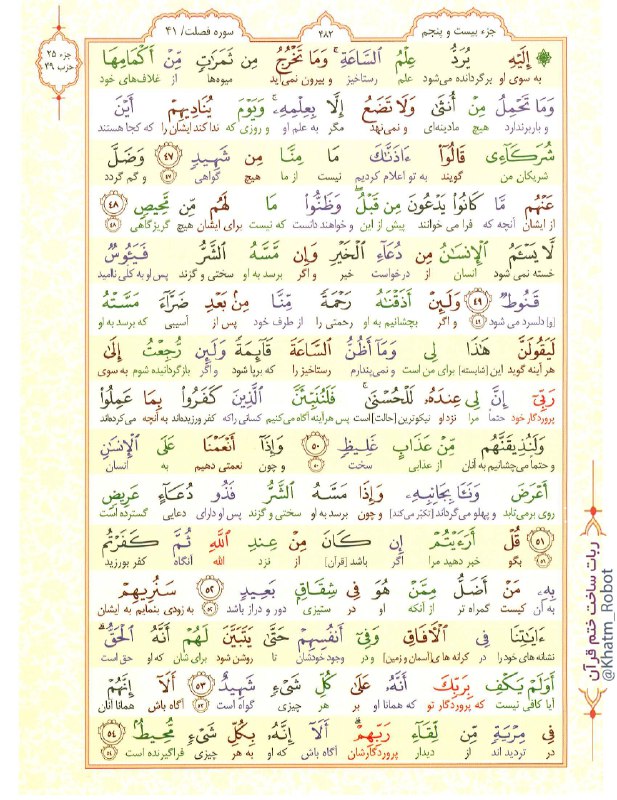 جزء بیست و پنجم
۴۸۲
سوره فصلت/ ۴۱
جزء ۲۵
حزب ۴۹
إِلَيْهِ يُرَدُّ عِلْمُ السَّاعَةِ ۚ وَمَا تَخْرُجُ مِن ثَمَرَاتٍ مِّنْ أَكْمَامِهَا
به سوی او برگردانده می‌شود علم رستاخیز و بیرون نمی‌آید میوه‌ها از غلاف‌های خود
وَمَا تَحْمِلُ مِنْ أُنثَىٰ وَلَا تَضَعُ إِلَّا بِعِلْمِهِۦ ۚ وَيَوْمَ يُنَادِيهِمْ أَيْنَ
و باربرندارد هیچ مادینه‌ای و نمی‌نهد مگر به علم او و روزی که ندا کند ایشان را که کجا هستند
شُرَكَآءِى قَالُوٓا۟ ءَاذَنَّـٰكَ مَا مِنَّا مِن شَهِيدٍ ۝۴۷ وَضَلَّ
شریکان من گویند به تو اعلام کردیم نیست از ما هیچ گواهی ۴۷ و گم گردد
عَنْهُم مَّا كَانُوا۟ يَدْعُونَ مِن قَبْلُ ۖ وَظَنُّوا۟ مَا لَهُم مِّن مَّحِيصٍ ۝۴۸
از ایشان آنچه که فرا می خوانند پیش از این و خواهند دانست که نیست برای ایشان هیچ گریزگاهی ۴۸
لَّا يَسْـَٔمُ ٱلْإِنسَـٰنُ مِن دُعَآءِ ٱلْخَيْرِ وَإِن مَّسَّهُ ٱلشَّرُّ فَيَـُٔوسٌ
خسته نمی شود انسان از درخواست خیر و اگر برسد به او سختی و گزند پس او به کلی ناامید
قَنُوطٌ ۝۴۹ وَلَئِنْ أَذَقْنَـٰهُ رَحْمَةً مِّنَّا مِنۢ بَعْدِ ضَرَّآءَ مَسَّتْهُ
[و] دلسرد می شود ۴۹ و اگر بچشانیم به او رحمتی را از طرف خود پس از آسیبی که برسد به او
لَيَقُولَنَّ هَـٰذَا لِى وَمَآ أَظُنُّ ٱلسَّاعَةَ قَآئِمَةً وَلَئِن رُّجِعْتُ إِلَىٰ
هر آینه گوید این [شایسته] برای من است و نمی‌پندارم رستاخیز را که برپا شود و اگر بازگردانیده شوم به سوی
رَبِّىٓ إِنَّ لِى عِندَهُۥ لَلْحُسْنَىٰ ۚ فَلَنُنَبِّئَنَّ ٱلَّذِينَ كَفَرُوا۟ بِمَا عَمِلُوا۟
پروردگار خود حتماً مرا نزد او نیکوترین [حالت] است پس هرآینه آگاه می‌کنیم کسانی را که کفر ورزیده‌اند به آنچه می‌کرده‌اند
وَلَنُذِيقَنَّهُم مِّنْ عَذَابٍ غَلِيظٍ ۝۵۰ وَإِذَآ أَنْعَمْنَا عَلَى ٱلْإِنسَـٰنِ
و حتماً می‌چشانیم به آنان از عذابی سخت ۵۰ و چون نعمتی دهیم به انسان
أَعْرَضَ وَنَـَٔا بِجَانِبِهِۦ وَإِذَا مَسَّهُ ٱلشَّرُّ فَذُو دُعَآءٍ عَرِيضٍ
روی برمی‌تابد و پهلو می‌گرداند [تکبّر می‌کند] و چون برسد به او سختی و گزند پس او دارای دعایی گسترده است
۝۵۱ قُلْ أَرَءَيْتُمْ إِن كَانَ مِنْ عِندِ ٱللَّهِ ثُمَّ كَفَرْتُم
۵۱ بگو خبر دهید مرا اگر باشد [قرآن] از نزد الله آنگاه کفر بورزید
بِهِۦ مَنْ أَضَلُّ مِمَّنْ هُوَ فِى شِقَاقٍۭ بَعِيدٍ ۝۵۲ سَنُرِيهِمْ
به آن کیست گمراه تر از آنکه او در ستیزی دور و دراز باشد ۵۲ به زودی بنمایم به ایشان
ءَايَـٰتِنَا فِى ٱلْـَٔافَاقِ وَفِىٓ أَنفُسِهِمْ حَتَّىٰ يَتَبَيَّنَ لَهُمْ أَنَّهُ ٱلْحَقُّ ۗ
نشانه های خود را در کرانه های [آسمان و زمین] و در وجود خودشان تا روشن شود برای شان که او حق است
أَوَلَمْ يَكْفِ بِرَبِّكَ أَنَّهُۥ عَلَىٰ كُلِّ شَىْءٍ شَهِيدٌ ۝۵۳ أَلَآ إِنَّهُمْ
آیا کافی نیست که پروردگار تو که همانا او بر هر چیزی گواه است ۵۳ آگاه باش همانا آنان
فِى مِرْيَةٍ مِّن لِّقَآءِ رَبِّهِمْ ۗ أَلَآ إِنَّهُۥ بِكُلِّ شَىْءٍ مُّحِيطٌۢ ۝۵۴
در تردیید اند از دیدار پروردگارشان آگاه باش که او به هر چیزی فراگیرنده است ۵۴
ربات ساخت ختم قرآن
@Khatm_Robot